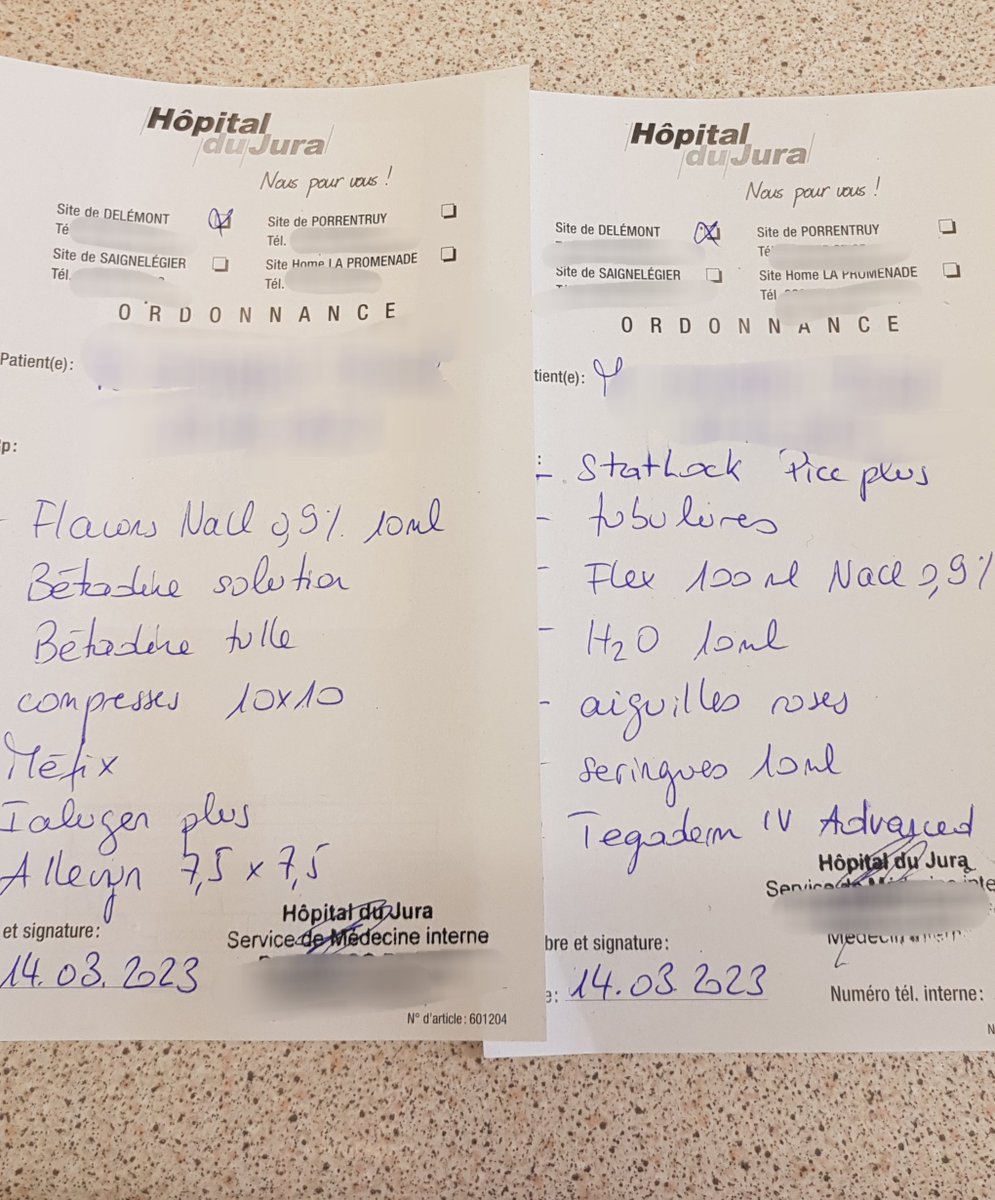 Hôpital
du Jura
Nous pour vous !
Site de DELÉMONT
Site de PORRENTRUY
Té
Tél.
Site de SAIGNELÉGIER
Site Home LA PROMENADE
Tél.
Tél.
ORDONNANCE
Patient(e):
p:
- Flacons Nacl 0,9% 10ml
Bétadine solution
Bétadine tulle
compresses 10x10
Méfix
Ialugen plus
Allevyn 7,5 x 7,5
Hôpital du Jura
et signature:
Service de Médecine interne
14.03.2023
N° d'article: 601204
Hôpital
du Jura
Nous pour vous !
Site de DELÉMONT
Site de PORRENTRUY
Té
Site de SAIGNELÉGIER
Site Home LA PROMENADE
Tél
ORDONNANCE
tient(e):
- StatLock Picc plus
- tubulures
- Flex 100ml Nacl 0,9%
- H2O 10ml
- aiguilles roses
- seringues 10ml
- Tegaderm IV Advanced
Hôpital du Jura
Service de Médecine inte
bre et signature:
e: 14.03.2023
Numéro tél. interne:
N